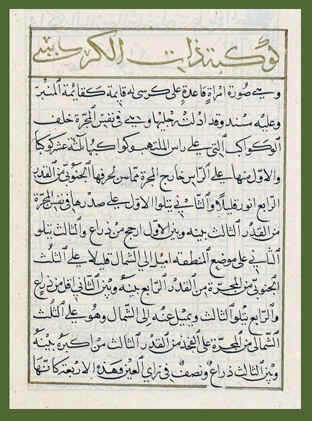 كوكبة ذات الكرسي
وهي صورة امراة قاعدة على كرسي له قايمة كقايمة المنبر
وعليه مسند وقد ادلت رجليها وهي في نفس المجرة خلف
الكواكب التي على راس الملتهب وكواكبها ثلثة عشر كوكبا
والاول منها على الراس خارج المجرة مماس لحرفها الجنوبي من القدر
الرابع انور قليلا والثاني يتلو الاول على صدرها في نفس المجرة
من القدر الثالث بينه وبين الاول ارجح من ذراع والثالث يتلو
الثاني على موضع المنطقة اميل الى الشمال قليلا على الثلث
الجنوبي من المجرة من القدر الرابع بينه وبين الثاني اقل من ذراع
والرابع يتلو الثالث ويميل عنه الى الشمال وهو على الثلث
الشمالي من المجرة على الفخذ من القدر الثالث من اكبره بينه
وبين الثالث ذراع ونصف في راي العين وهذه الاربعة كانها